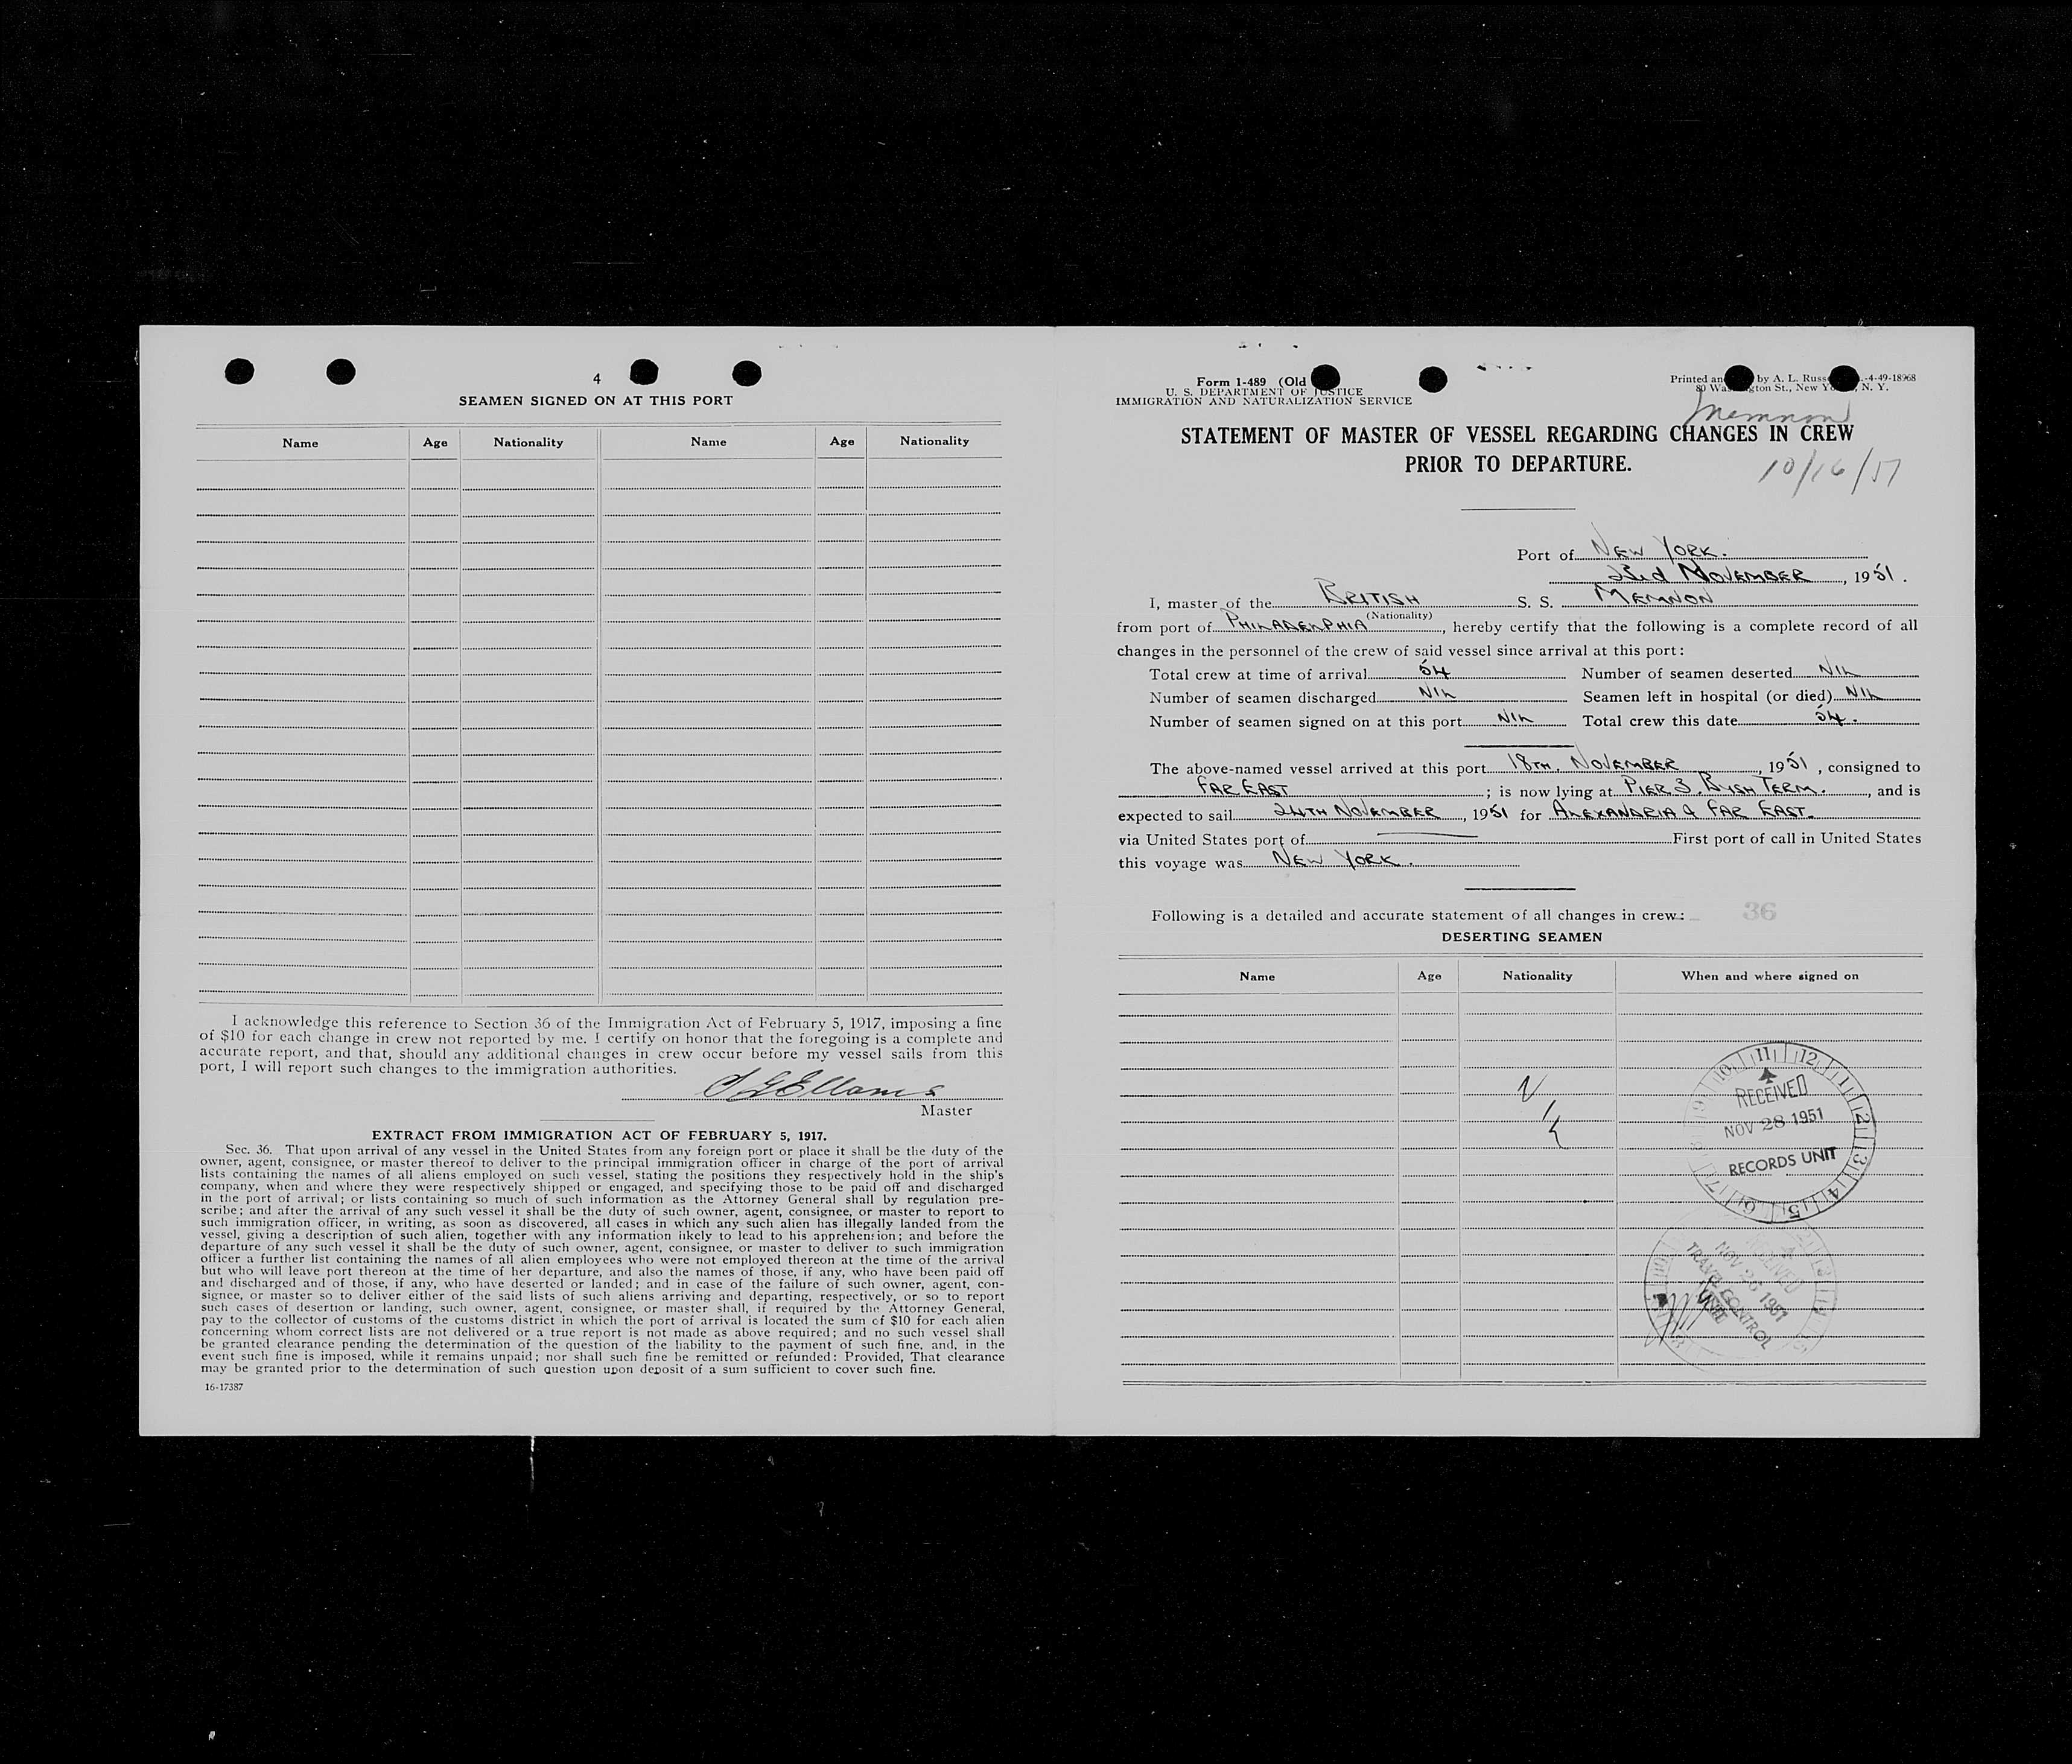 4
SEAMEN SIGNED ON AT THIS PORT
Name Age Nationality Name Age Nationality
I acknowledge this reference to Section 36 of the Immigration Act of February 5, 1917, imposing a fine
of $10 for each change in crew not reported by me. I certify on honor that the foregoing is a complete and
accurate report, and that, should any additional changes in crew occur before my vessel sails from this
port, I will report such changes to the immigration authorities.
Master
EXTRACT FROM IMMIGRATION ACT OF FEBRUARY 5, 1917.
Sec. 36. That upon arrival of any vessel in the United States from any foreign port or place it shall be the duty of the
owner, agent, consignee, or master thereof to deliver to the principal immigration officer in charge of the port of arrival
lists containing the names of all aliens employed on such vessel, stating the positions they respectively hold in the ship's
company, when and where they were respectively shipped or engaged, and specifying those to be paid off and discharged
in the port of arrival; or lists containing so much of such information as the Attorney General shall by regulation pre-
scribe; and after the arrival of any such vessel it shall be the duty of such owner, agent, consignee, or master to report to
such immigration officer, in writing, as soon as discovered, all cases in which any such alien has illegally landed from the
vessel, giving a description of such alien, together with any information likely to lead to his apprehension; and before the
departure of any such vessel it shall be the duty of such owner, agent, consignee, or master to deliver to such immigration
officer a further list containing the names of all alien employees who were not employed thereon at the time of the arrival
but who will leave port thereon at the time of her departure, and also the names of those, if any, who have been paid off
and discharged and of those, if any, who have deserted or landed; and in case of the failure of such owner, agent, con-
signee, or master so to deliver either of the said lists of such aliens arriving and departing, respectively, or so to report
such cases of desertion or landing, such owner, agent, consignee, or master shall, if required by the Attorney General,
pay to the collector of customs of the customs district in which the port of arrival is located the sum of $10 for each alien
concerning whom correct lists are not delivered or a true report is not made as above required; and no such vessel shall
be granted clearance pending the determination of the question of the liability to the payment of such fine, and, in the
event such fine is imposed, while it remains unpaid; nor shall such fine be remitted or refunded: Provided, That clearance
may be granted prior to the determination of such question upon deposit of a sum sufficient to cover such fine.
16-17387
Form 1-489 (Old
U. S. DEPARTMENT OF JUSTICE
IMMIGRATION AND NATURALIZATION SERVICE
Printed an by A. L. Russ -4-49-18968
80 Wa gton St., New Y , N. Y.
Memnon
STATEMENT OF MASTER OF VESSEL REGARDING CHANGES IN CREW
PRIOR TO DEPARTURE.
10/16/51
Port of NEW YORK.
23rd NOVEMBER, 1951.
I, master of the BRITISH S. S. MEMNON
(Nationality)
from port of PHILADELPHIA, hereby certify that the following is a complete record of all
changes in the personnel of the crew of said vessel since arrival at this port:
Total crew at time of arrival 54 Number of seamen deserted NIL
Number of seamen discharged NIL Seamen left in hospital (or died) NIL
Number of seamen signed on at this port NIL Total crew this date 54.
The above-named vessel arrived at this port 18TH. NOVEMBER, 1951, consigned to
FAR EAST; is now lying at PIER 3. BUSH TERM., and is
expected to sail 24TH NOVEMBER, 1951 for ALEXANDRIA & FAR EAST.
via United States port of First port of call in United States
this voyage was NEW YORK.
Following is a detailed and accurate statement of all changes in crew:
36
DESERTING SEAMEN
Name Age Nationality When and where signed on
NIL
RECEIVED
NOV 28 1951
RECORDS UNIT
RECEIVED
NOV 26 1951
TRAVEL CONTROL